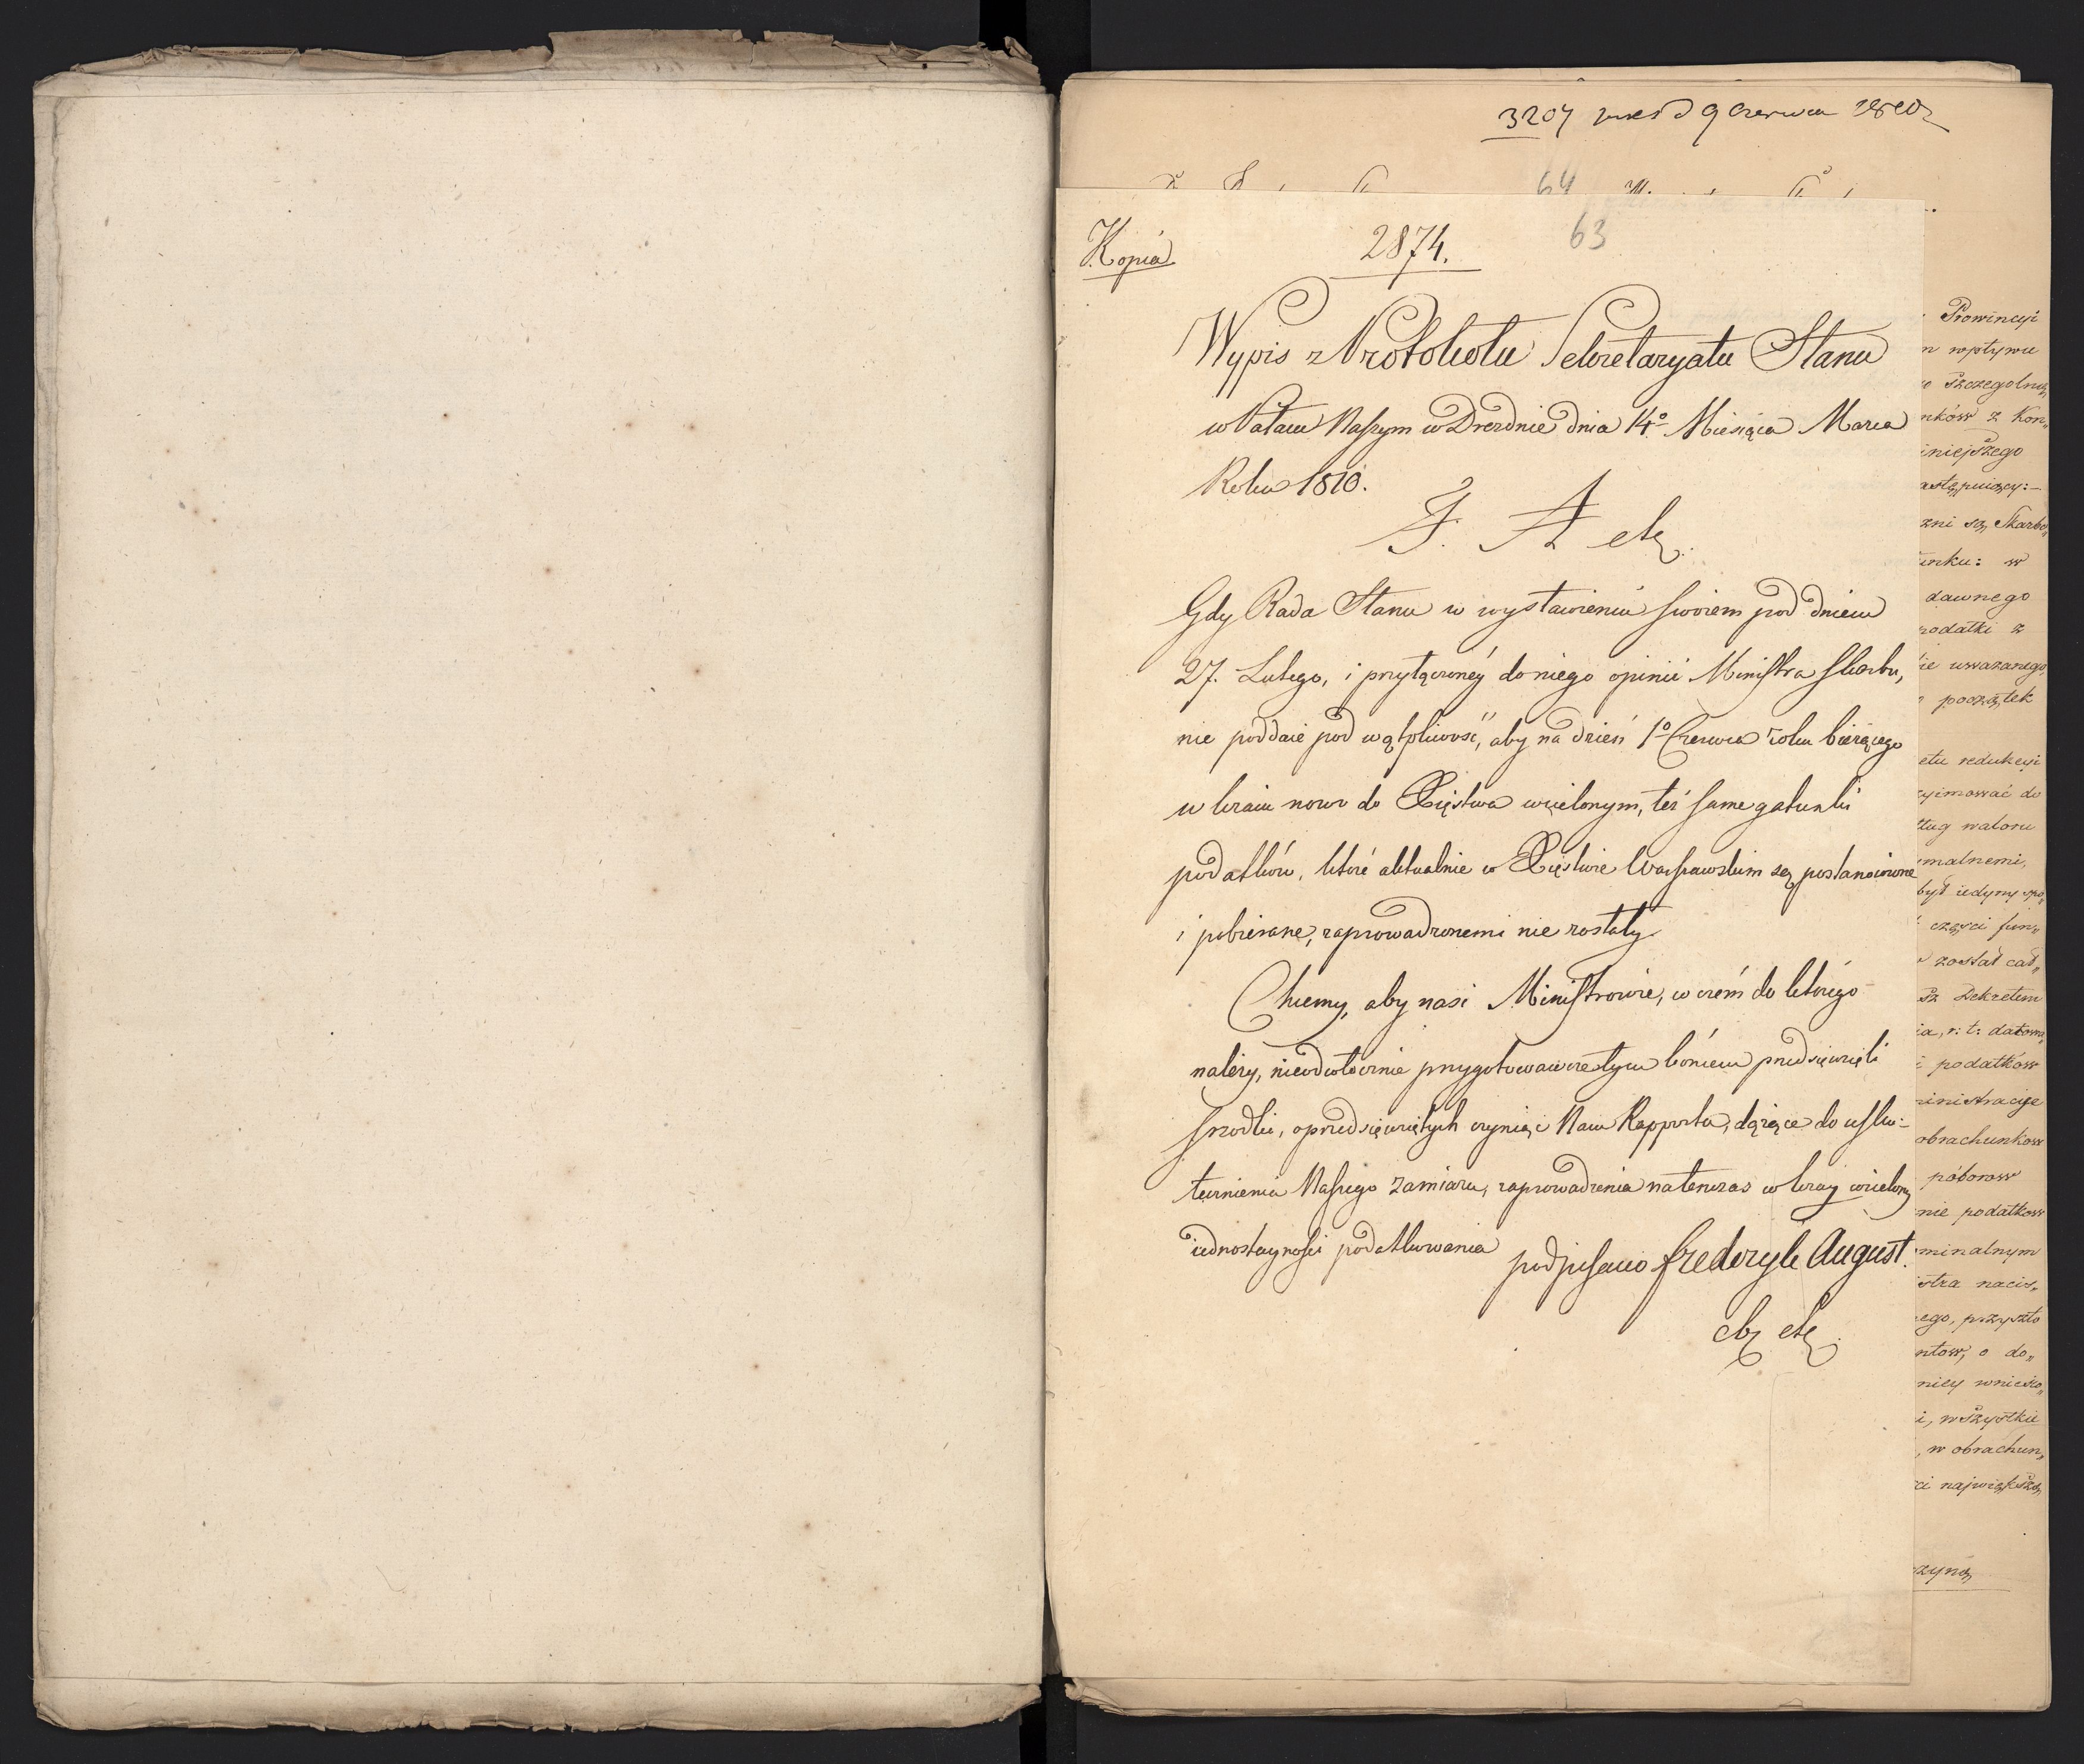 3207 d 9 Czerwca 1810
64
Kopia
2874.
63
Wypis z Protokołu Sekretaryatu Stanu
w Pałacu Naszym w Dreznie dnia 14º Miesiąca Marca
Roku 1810.
F. A etc.
Gdy Rada Stanu w wystawieniu swoiem pod dniem
27. Lutego, i przyłączoney do niego opinii Ministra Skarbu,
nie poddaie pod wątpliwość, aby na dzień 1º Czerwca roku bieżącego
w kraiu nowo do Xięstwa wcielonym, też same gatunki
podatków, które aktualnie w Xięstwie Warszawskim są postanowione
i pobierane, zaprowadzonemi nie zostały
Chcemy, aby nasi Ministrowie, w czém do którégo
należy, nieodwłocznie przygotowawcze tym końcem przedsięwzięli
srzodki, o przedsięwziętych czyniąc Nam Rapporta, dążące do usku-
tecznienia Naszego zamiaru, zaprowadzenia natenczas w kray wcielony
iednostayności podatkowania
podpisano Frederyk August.
etc etc
Prowincyi
wpływu
szczegolną
nków z Kon„
iniejszego
astępuiący:-
zni są, Skarbo„
unku: w
dawnego
podatki z
ie uważanego,
początek
etu redukcyi
zyimować do
ług waloru
malnemi,
był iedyny spo„
części fun„
został cał„
sz Dekretem
ia, r: t: datowa„
i podatków
ministracye
obrachunków
poborow
nie podatkow
minalnym
istra nacis„
ego, przyszło
ntow, o do„
nicy wniesio„
i, wszystkie
, w obrachun„
ci największą
czyną